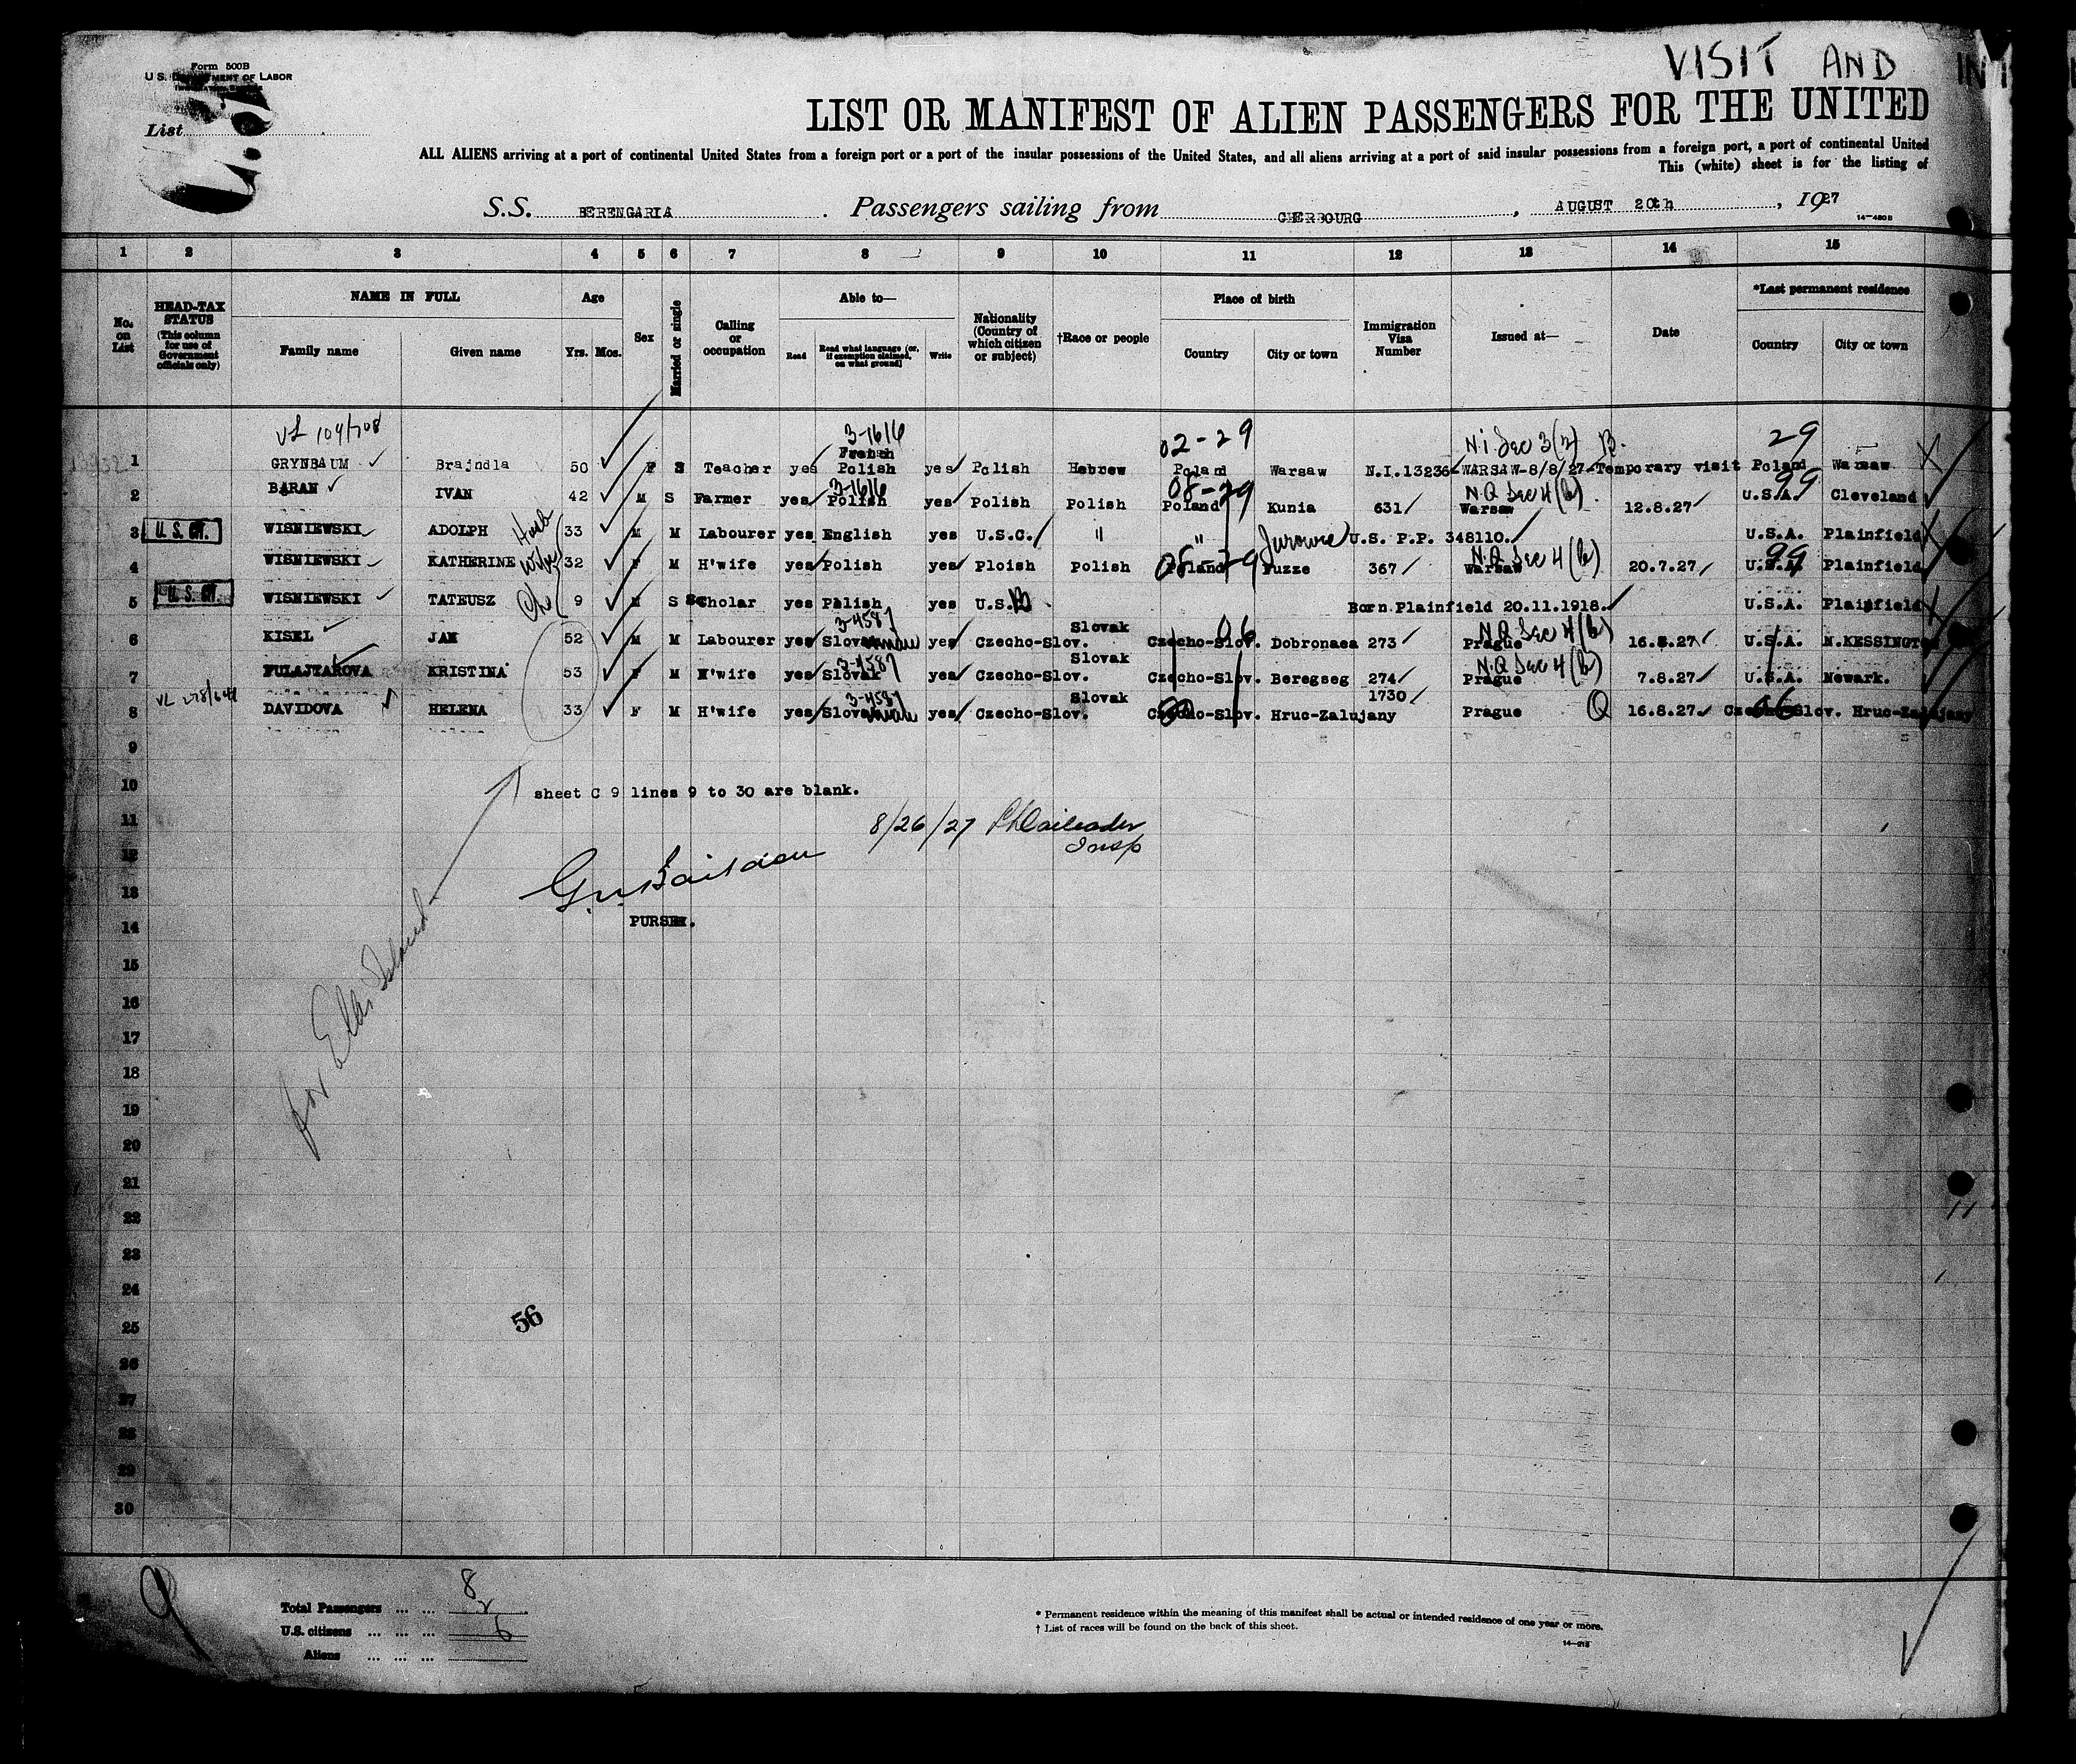 VISIT AND
Form 500B
U.S. DEPARTMENT OF LABOR
List
LIST OR MANIFEST OF ALIEN PASSENGERS FOR THE UNITED
ALL ALIENS arriving at a port of continental United States from a foreign port or a port of the insular possessions of the United States, and all aliens arriving at a port of said insular possessions from a foreign port, a port of continental United
This (white) sheet is for the listing of
S.S. BERENGARIA. Passengers sailing from CHERBOURG, AUGUST 20th, 1927
14-480B
1 2 3 4 5 6 7 8 9 10 11 12 13 14 15
No. on List
HEAD-TAX STATUS (This column for use of Government officials only)
NAME IN FULL
Family name Given name
Age
Yrs. Mos.
Sex
Married or single
Calling or occupation
Able to—
Read Read what language (or, if exemption claimed, on what ground) Write
Nationality (Country of which citizen or subject)
†Race or people
Place of birth
Country City or town
Immigration Visa Number
Issued at—
Date
*Last permanent residence
Country City or town
VL 109/708 3-1616 02-29 N.I. Sec 3(2) B. 29
1 GRYNBAUM Brajndla 50 F S Teacher yes French Polish yes Polish Hebrew Poland Warsaw N.I.13236 WARSAW-8/8/27-Temporary visit Poland Warsaw
3-1616 08-29 N.Q Sec 4(b) 99
2 BARAN IVAN 42 M S Farmer yes Polish yes Polish Polish Poland Kunia 631 Warsaw 12.8.27 U.S.A. Cleveland
3 U.S. CIT. WISNIEWSKI ADOLPH Husb 33 M M Labourer yes English yes U.S.C. " " U.S. P.P. 348110. U.S.A. Plainfield
08-29 N.Q Sec 4(b) 99
4 WISNIEWSKI KATHERINE Wife 32 F M H'wife yes Polish yes Ploish Polish Poland Fuzze 367 Warsaw 20.7.27 U.S.A. Plainfield
5 U.S. CIT. WISNIEWSKI TATEUSZ Ch 9 M S Scholar yes Polish yes U.S. Born Plainfield 20.11.1918. U.S.A. Plainfield
3-4587 06 N.Q Sec 4(b)
6 KISEL JAN 52 M M Labourer yes Slov yes Czecho-Slov. Slovak Czecho-Slov. Dobronaea 273 Prague 16.8.27 U.S.A. N.KESSINGTON
3-4587 N.Q Sec 4(b)
7 FULAJTAROVA KRISTINA 53 F M H'wife yes Slovak yes Czecho-Slov. Slovak Czecho-Slov. Beregseg 274 Prague 7.8.27 U.S.A. Newark.
VL 278/641 3-4587
8 DAVIDOVA HELENA 33 F M H'wife yes Slov yes Czecho-Slov. Slovak Czecho-Slov. Hruc-Zalujany 1730 Prague Q 16.8.27 Czecho-Slov. Hruc-Zalujany
06
9
10
sheet C 9 lines 9 to 30 are blank.
11
8/26/27
Insp
12
13
PURSER.
14
for Ellis Island
15
16
17
18
19
20
21
22
23
24
56
25
26
27
28
29
30
9
Total Passengers ... ... 8
2
U.S. citizens ... ... ... 6
Aliens ... ... ...
* Permanent residence within the meaning of this manifest shall be actual or intended residence of one year or more.
† List of races will be found on the back of this sheet.
14-213